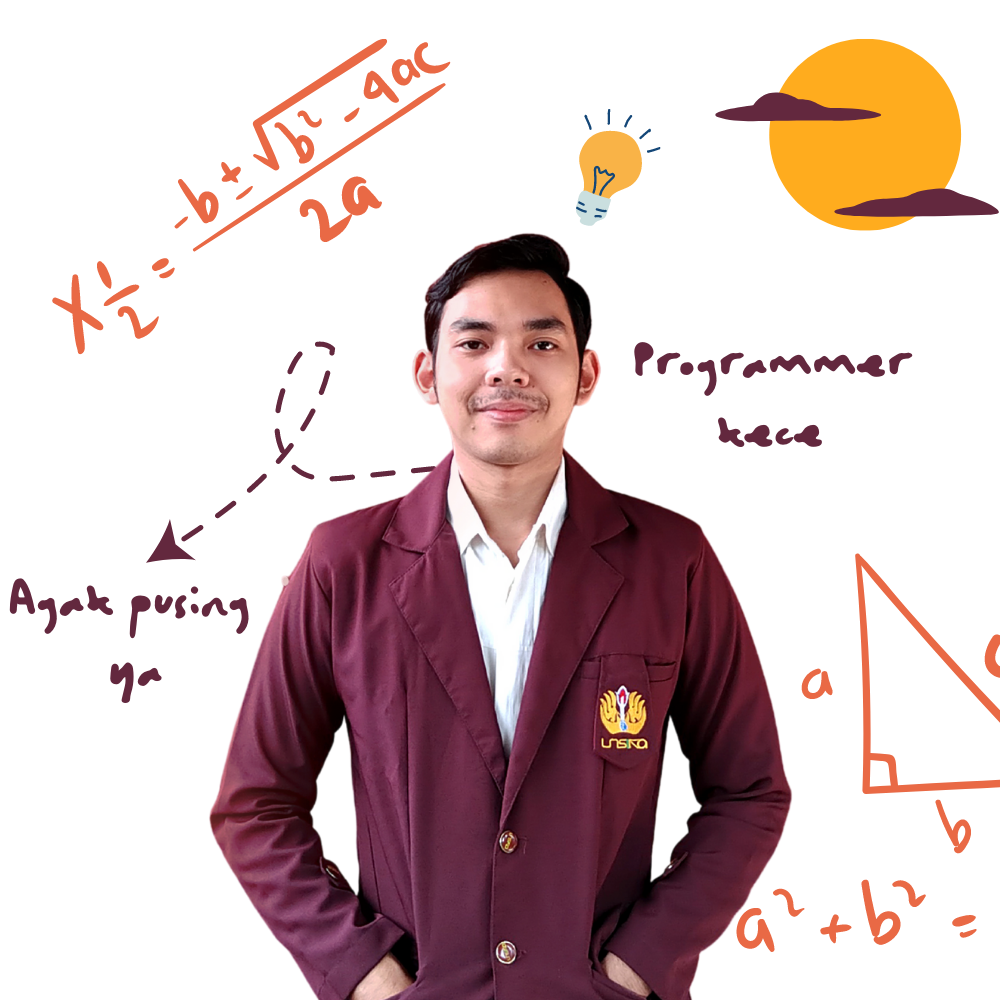 x 1/2 = -b ± √b² - 4ac / 2a
Programmer
kece
Agak pusing
ya
UNSIKA
a
c
b
a² + b² =